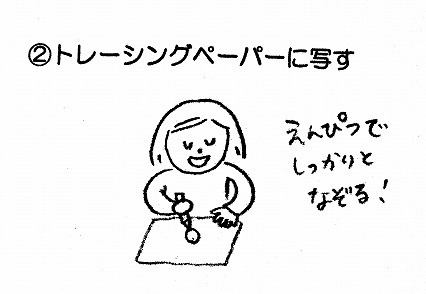 ②トレーシングペーパーに写す
えんぴつで
しっかりと
なぞる!